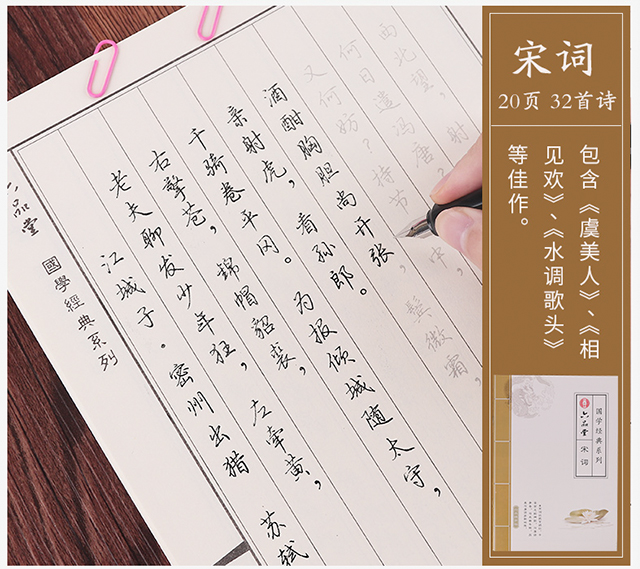 宋词
20页 32首诗
包含《虞美人》、《相
见欢》、《水调歌头》
等佳作。
六品堂
國學經典系列
江城子。密州出猎 苏轼
老夫聊发少年狂,左牵黄,
右擎苍,锦帽貂裘,
千骑卷平冈。为报倾城随太守,
亲射虎,看孙郎。
酒酣胸胆尚开张,鬓微霜,
又何妨?持节中,
何日遣冯唐?
西北望,射
国学经典系列
六品堂
宋词